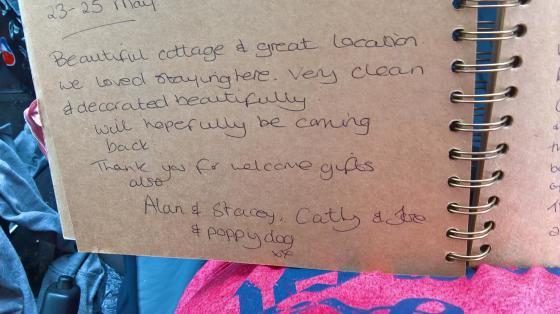 23-25 May
Beautiful cottage & great location
we loved staying here. Very clean
& decorated beautifully
will hopefully be coming
back
Thank you for welcome gifts
also
Alan & Stacey, Cathy &
& poppy dog
xx